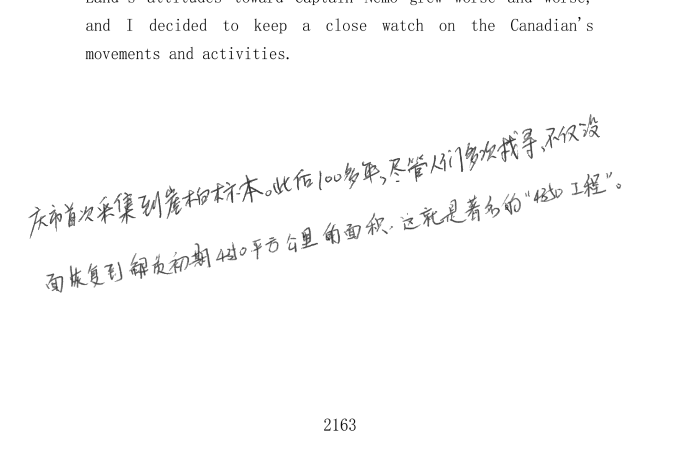 Land's attitudes toward Captain Nemo grew worse and worse,
and I decided to keep a close watch on the Canadian's
movements and activities.
庆市首次采集到崖柏标本。此后100多年,尽管人们多次找寻,不仅没
面恢复到 初期4350平方公里的面积.这就是著名的“4350工程”。
2163